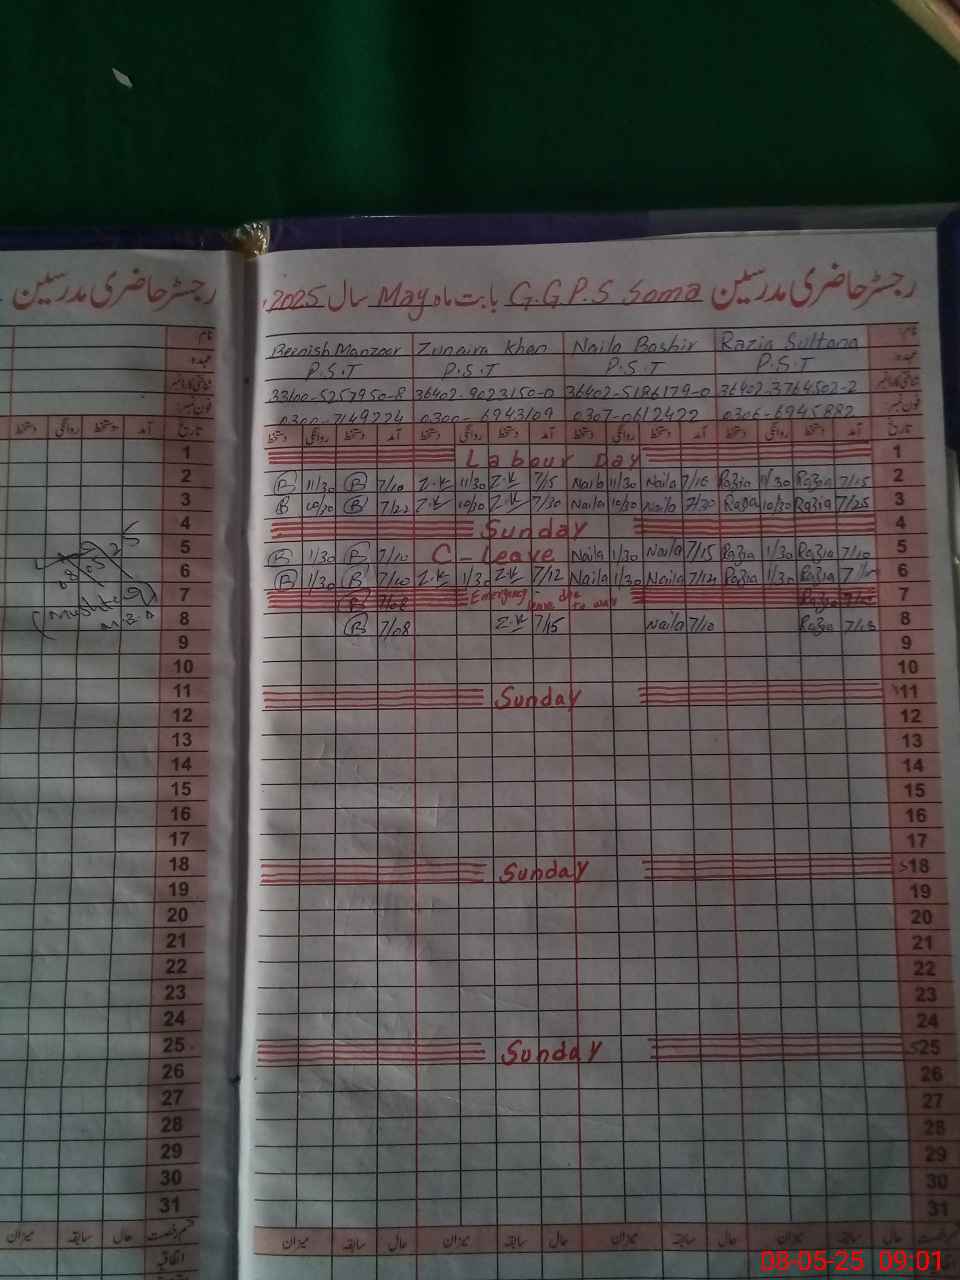 رجسٹر حاضری مدرسین
رجسٹر حاضری مدرسین G.G.P.S Soma بابت ماہ May سال 2025
نام
Beenish Manzoor Zunaira Khan Naila Bashir Razia Sultana
عہدہ
P.S.T P.S.T P.S.T P.S.T
شناختی کارڈ نمبر
33100-5257950-8 36402-9023150-0 36402-5186179-0 36402-3764502-2
فون نمبر
0300-7149224 0300-6943109 0307-0612422 0306-6945882
دستخط روانگی دستخط آمد دستخط روانگی دستخط آمد دستخط روانگی دستخط آمد دستخط روانگی دستخط آمد تاریخ
1 Labour Day 1
2 B 11/30 B 7/10 Z.K 11/30 Z.K 7/5 Naila 11/30 Naila 7/10 Razia 11/30 Razia 7/15 2
3 B 10/30 B 7/22 Z.K 10/30 Z.K 7/30 Naila 10/30 Naila 7/20 Razia 10/30 Razia 7/25 3
4 Sunday 4
5 B 1/30 B 7/10 C-Leave Naila 1/30 Naila 7/15 Razia 1/30 Razia 7/10 5
6 B 1/30 B 7/10 Z.K 1/30 Z.K 7/12 Naila 1/30 Naila 7/12 Razia 1/30 Razia 6
7 B 7/08 Emergency leave due to war Razia 7
8 B 7/08 Z.K 7/15 Naila 7/10 Razia 7/13 8
9 9
10 10
11 Sunday 11
12 12
13 13
14 14
15 15
16 16
17 17
18 Sunday 18
19 19
20 20
21 21
22 22
23 23
24 24
25 Sunday 25
26 26
27 27
28 28
29 29
30 30
31 31
میزان سابقہ حال قسم رخصت
میزان سابقہ حال میزان سابقہ حال میزان سابقہ حال میزان سابقہ حال
اتفاقیہ
08-05-25 09:01